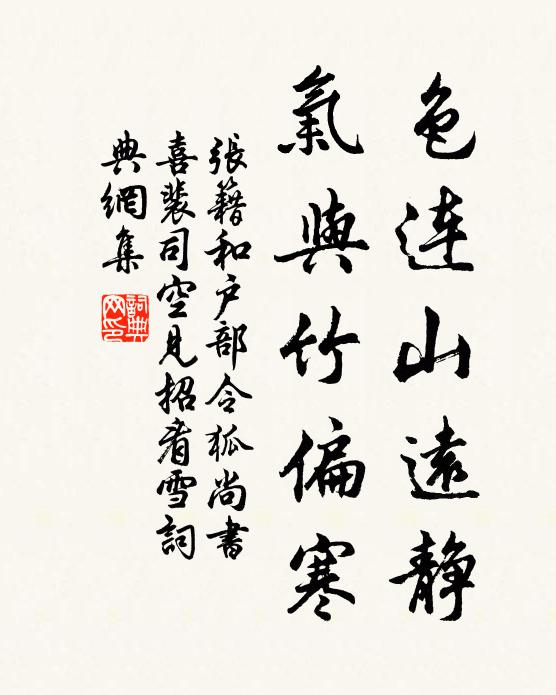 色连山遠静
氣與竹偏寒
張籍和户部令狐尚書
喜裴司空見招看雪詞
典網集
詞典
网印